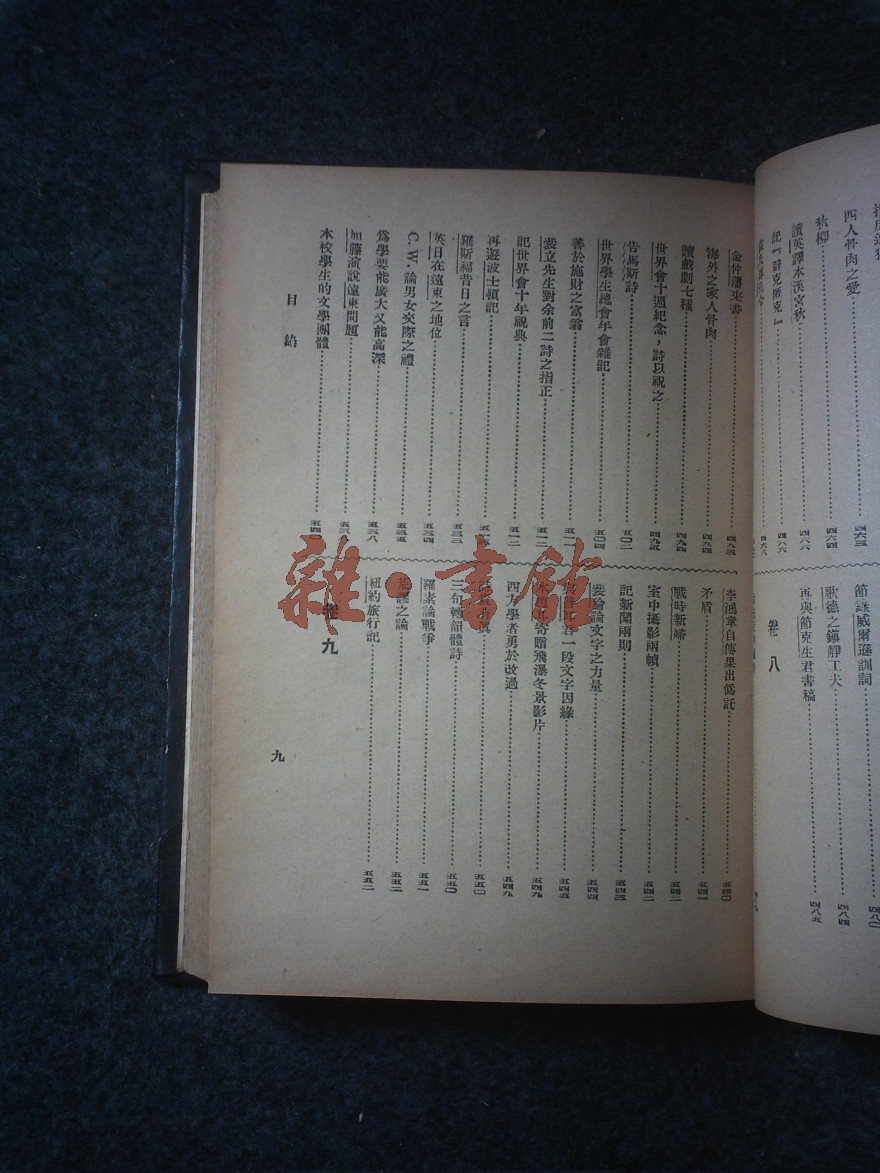 四人骨肉之愛……四六三
秋柳……四六四
讀英譯本漢宮秋……四六六
記『辟克匿克』……四六六
節錄威爾遜訓詞……四八〇
歌德之鎮靜工夫……四八四
再與節克生君書稿……四八五
卷八
金仲藩來書……四九三
海外之家人骨肉……四九四
讀戲劇七種……四九四
世界會十週紀念，詩以祝之……四九五
告馬斯詩……五〇二
世界學生總會年會雜記……五〇四
善於施財之富翁……五一一
裴立先生對余前二詩之指正……五一二
記世界會十年祝典……五一二
再遊波士頓記
羅斯福昔日之言……五三三
英日在遠東之地位……五三四
C. W. 論男女交際之禮……五三五
爲學要能廣大又能高深……五三八
加藤演說遠東問題……五三九
本校學生的文學團體……五四〇
李鴻章自傳果出僞託……五四〇
矛盾……五四一
戰時新婦……五四二
室中攝影兩幀……五四二
記新聞兩則……五四三
裴倫論文字之力量……五四四
一段文字因緣……五四五
寄贈飛瀑冬景影片……五四九
西方學者勇於改過……五四九
……五五〇
三句轉韻體詩……五五〇
羅素論戰爭……五五一
荒謬之論……五五二
紐約旅行記……五五二
卷九
目錄
九
雜·書館